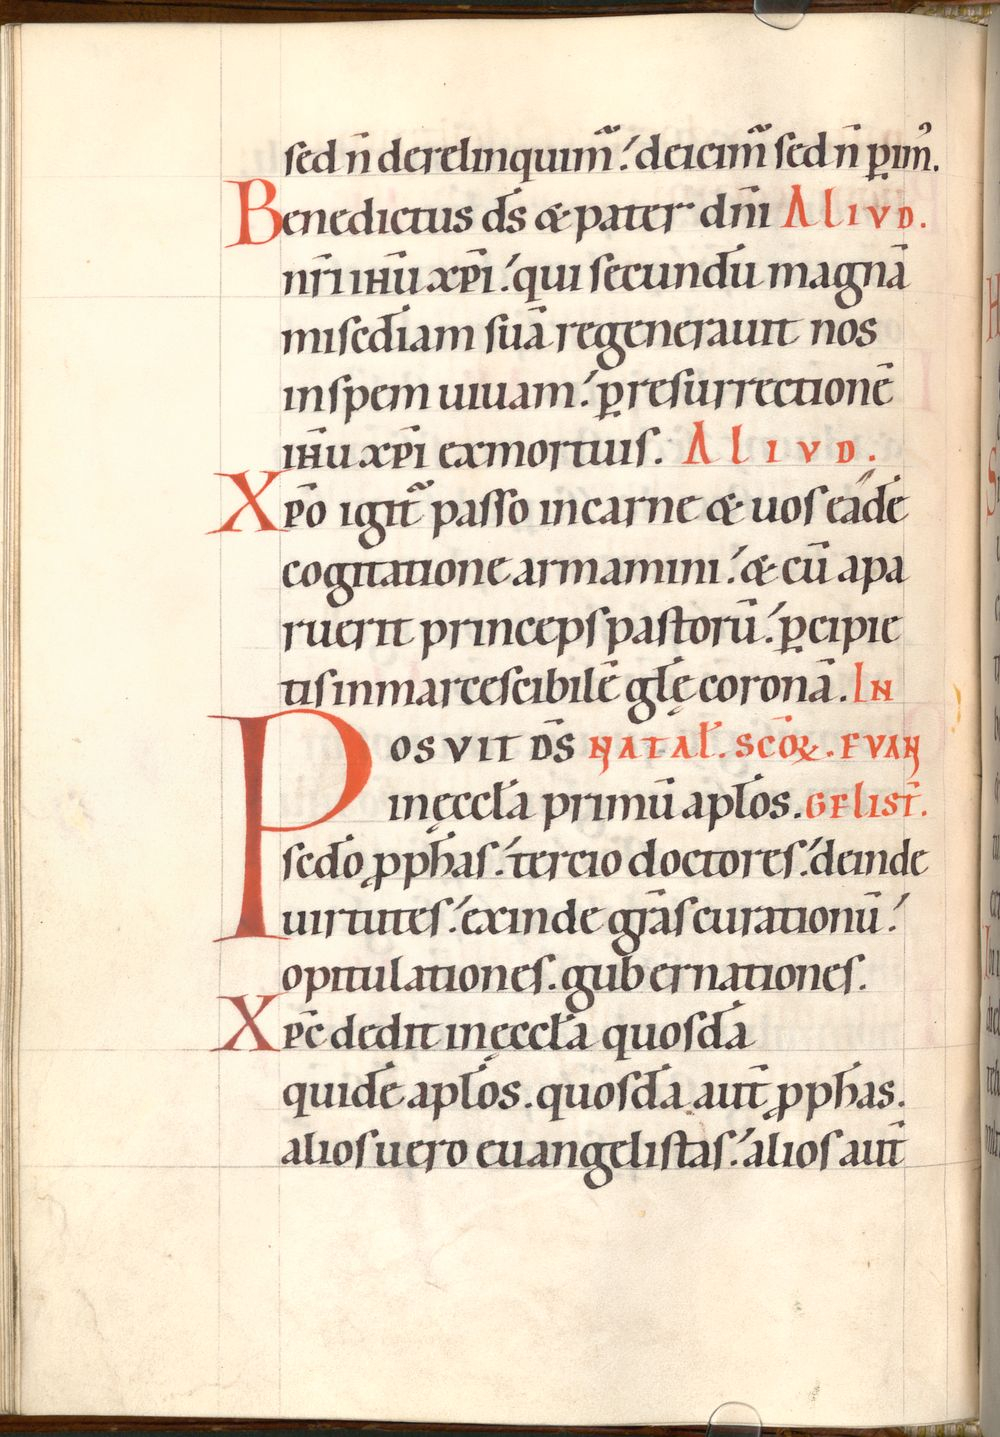 sed n̄ derelinquim̄ᷓ deicim̄ᷓ sed n̄ ꝑim̄᾽.
Benedictus d̄s & pater dn̄i ALIVD.
nr̄i ihū xp̄i qui secundū magnā
misedīam suā regenerauit nos
in spem uiuam ꝑ resurrectionē
ihū xp̄i ex mortuis. ALIVD.
Xp̄o igit̄ᷓ passo in carne & uos eādē
cogitatione armamini & cū apa
ruerit princeps pastorū ꝑcipie
tis inmarcescibilē gl̄ę coronā. IN
POSVIT D̄S NATAL̄. SCŌꝜ. EVAN
in ęccl̄a primū apl̄os. GELIST̄.
sedo ꝓph̄as tercio doctores deinde
uirtutes exinde grās curationū
opitulationes. gubernationes.
Xp̄c dedit in ęccl̄a quosdā
quidē apl̄os. quosdā aut̄ ꝓph̄as.
alios uero euangelistas alios aut̄